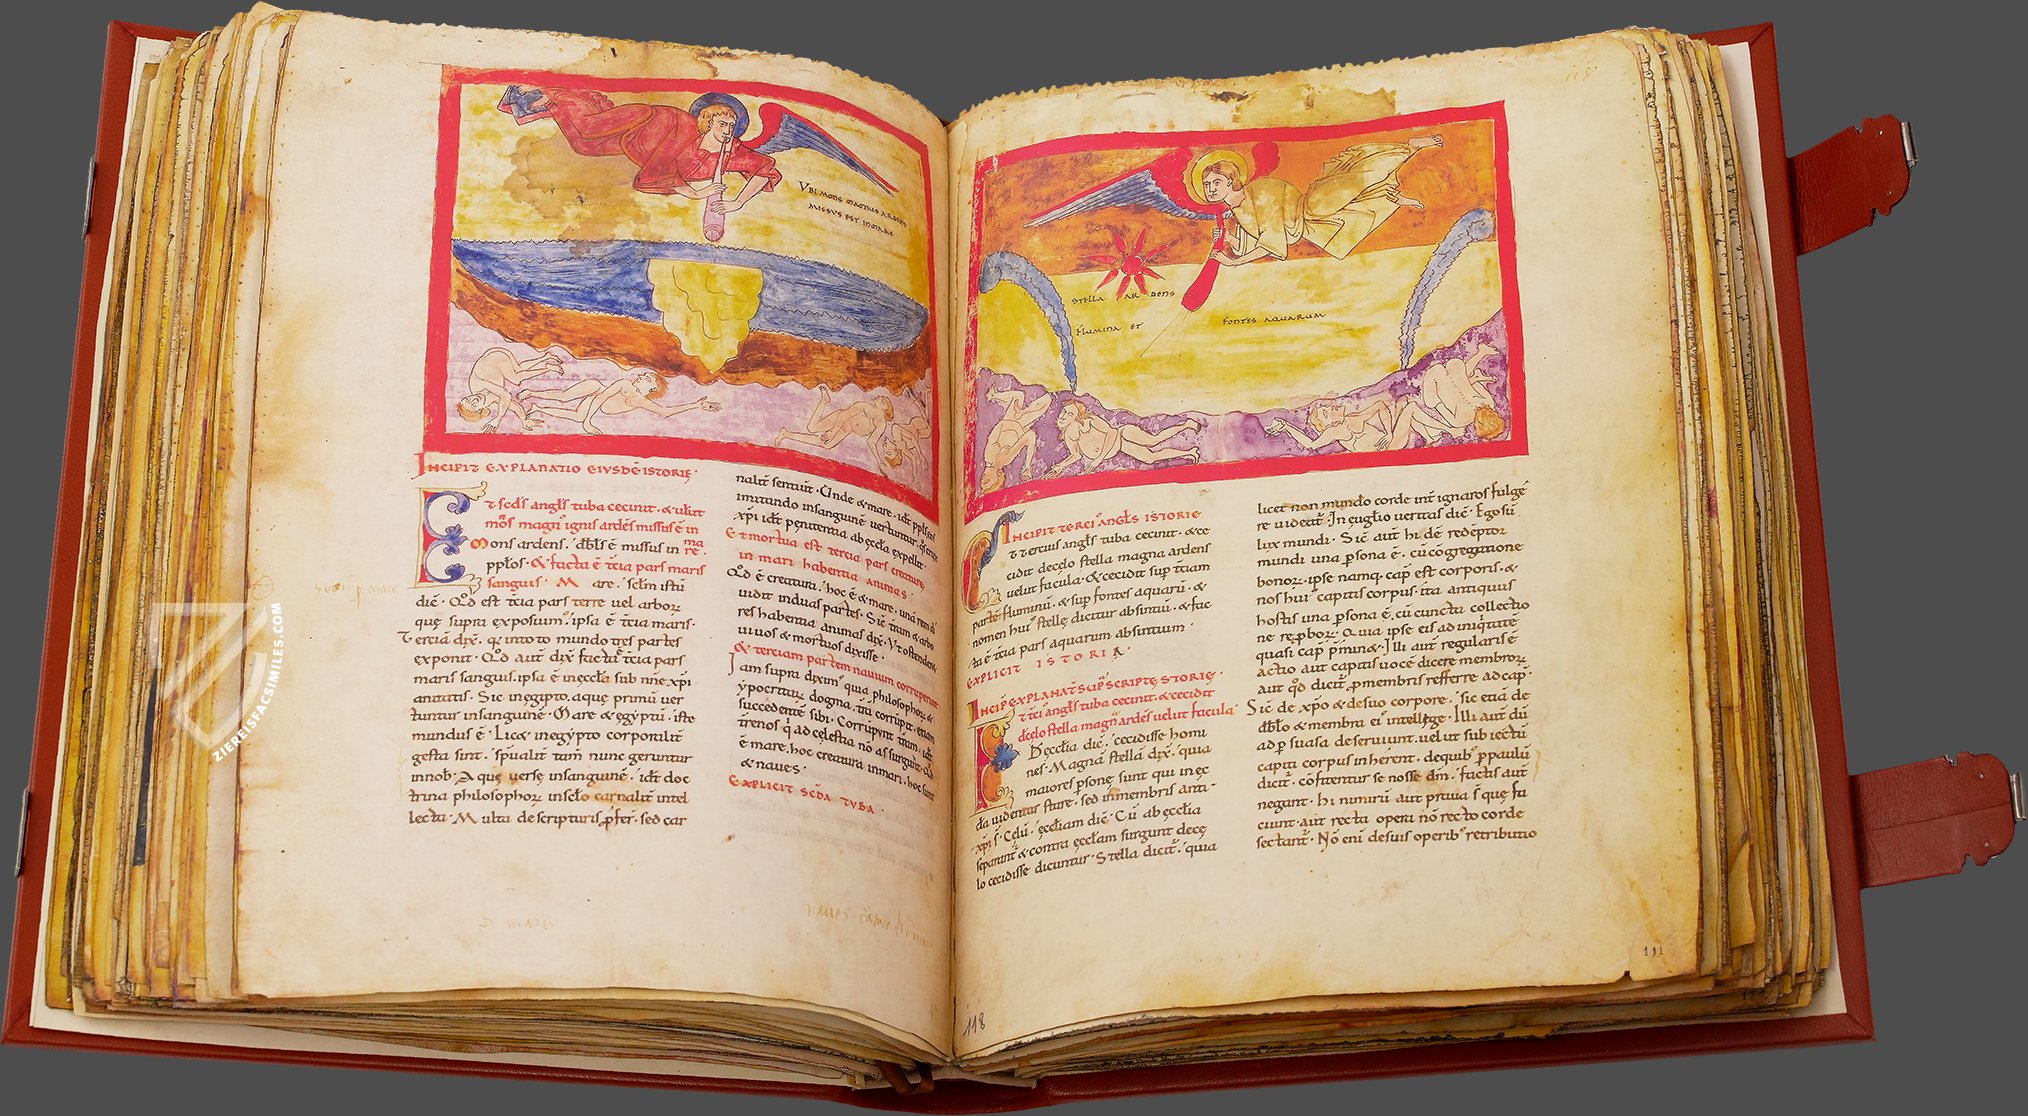 Ubi mons magnus ardens
missus est in mare
Incipit explanatio eiusdē istorię·
Et scd̄s angl̄s tuba cecinit· & uelut
mōs magn' ignis ardēs missus ē in
Mons ardens· missus in mare·
pplos· & facta ē t̄cia pars maris
sanguis· Mare· sclm̄ istū
diē· Qd̄ est t̄cia pars terre uel arboꝝ
quę supra exposuim' ipsa ē t̄cia maris·
Terciā dix̄· in toto mundo tres partes
exponit· Qd̄ aut̄ dix̄ t̄cia pars
maris sanguis· ipsa ē inęccła sub nn̄e xp̄i
anitatis· Sic inęgipto aquę primū uer
tuntur insanguinē· Mare & ęgyptū· iste
mundus ē· Licet inęgypto corporalit̄
gesta sint· sp̄ualit̄ tam̄ nunc geruntur
innob'· Aquę uersę insanguinē· idē doc
trina philosophoꝝ inscło carnalit̄ intel
lecta· Multa de scripturis sed car
nalit̄ sentiūt· Unde & mare· idē
imitando insanguinē uertuntur·
xp̄i idē penitentia ab ęccła expellit·
Et mortua est tercia pars creaturę
in mari habentia animas·
Qd̄ ē creatura· hoc ē & mare· unā rem
uidit induas partes· Sic trām & arbo
res habentia animas dix̄· Ut ostenderet
uiuos & mortuos dixisse·
& terciam partem nauium corruperunt
Iam supra diximus quia philosophoꝝ &
ypocritaꝝ dogma trā corrupit· etiam
succedentē sibi· Corrupunt trām· idē
trenos ad cęlestia nō assurgunt· Qd̄
ē mare· hoc creatura in mari· hoc sunt
& naues·
Explicit scd̄a tuba·
stella ardens
flumina et fontes aquarum
118
Incipit terci' angl̄s istorie
Et tercius angl̄s tuba cecinit· & ce
cidit decęlo stella magna ardens
uelut facula· & cecidit sup t̄ciam
partē fluminū· & sup fontes aquarū· &
nomen hui' stellę dicitur absintiū· & fac
ta ē t̄cia pars aquarum absintium·
Explicit istoria·
Incip̄ explanat̄ sup̄scriptę storię·
Et tci' angl̄s tuba cecinit· & cecidit
decęlo stella magn̄ ardēs uelut facula
De ęccłia diē· cecidisse homi
nes· Magnā stellā dix̄· quia
maiores psonę sunt qui in ęc
cła uidentur stare· sed inmembris anti
xp̄i s̄· Cęlū· ęccliam diē· Cū ab ęccłia
separant̄ & contra ęccłam surgunt decę
lo cecidisse dicuntur· Stella dicit̄· quia
licet non mundo corde int̄ ignaros fulgē
re uideat̄· In euglio ueritas diē· Ego sū
lux mundi· Sic aut̄ hi dē redēptor
mundi una psona ē· cū cōgregatione
bonoꝝ· ipse namq· cap' est corporis· &
nos hui' capitis corpus· ita antiquus
hostis una psona ē· cū cuncta collectio
ne rep̄boꝝ· Quia ipse eis ad iniq̄tatē
quasi cap' p̄minet· Illi aut̄ regularis ē
actio aut capitis uocē dicere membroꝝ
aut qd̄ dicit̄ p membris refferre ad cap'·
Sic de xp̄o & desuo corpore· sic etiā de
dbł̄o & membra ei' intellęge· Illi aut̄ dū
adp suasa deseruiunt· uelut sub iectū
capiti corpus inhęrent· dequib' p paulū
dicit̄· cōfitentur se nosse dm̄· factis aut̄
negant· hi nimirū aut praua s̄ quę fa
ciunt· aut recta opera nō recto corde
sectant̄· Nō eni desuis operib' retributio
111
118
ZIEREISFACSIMILES.COM